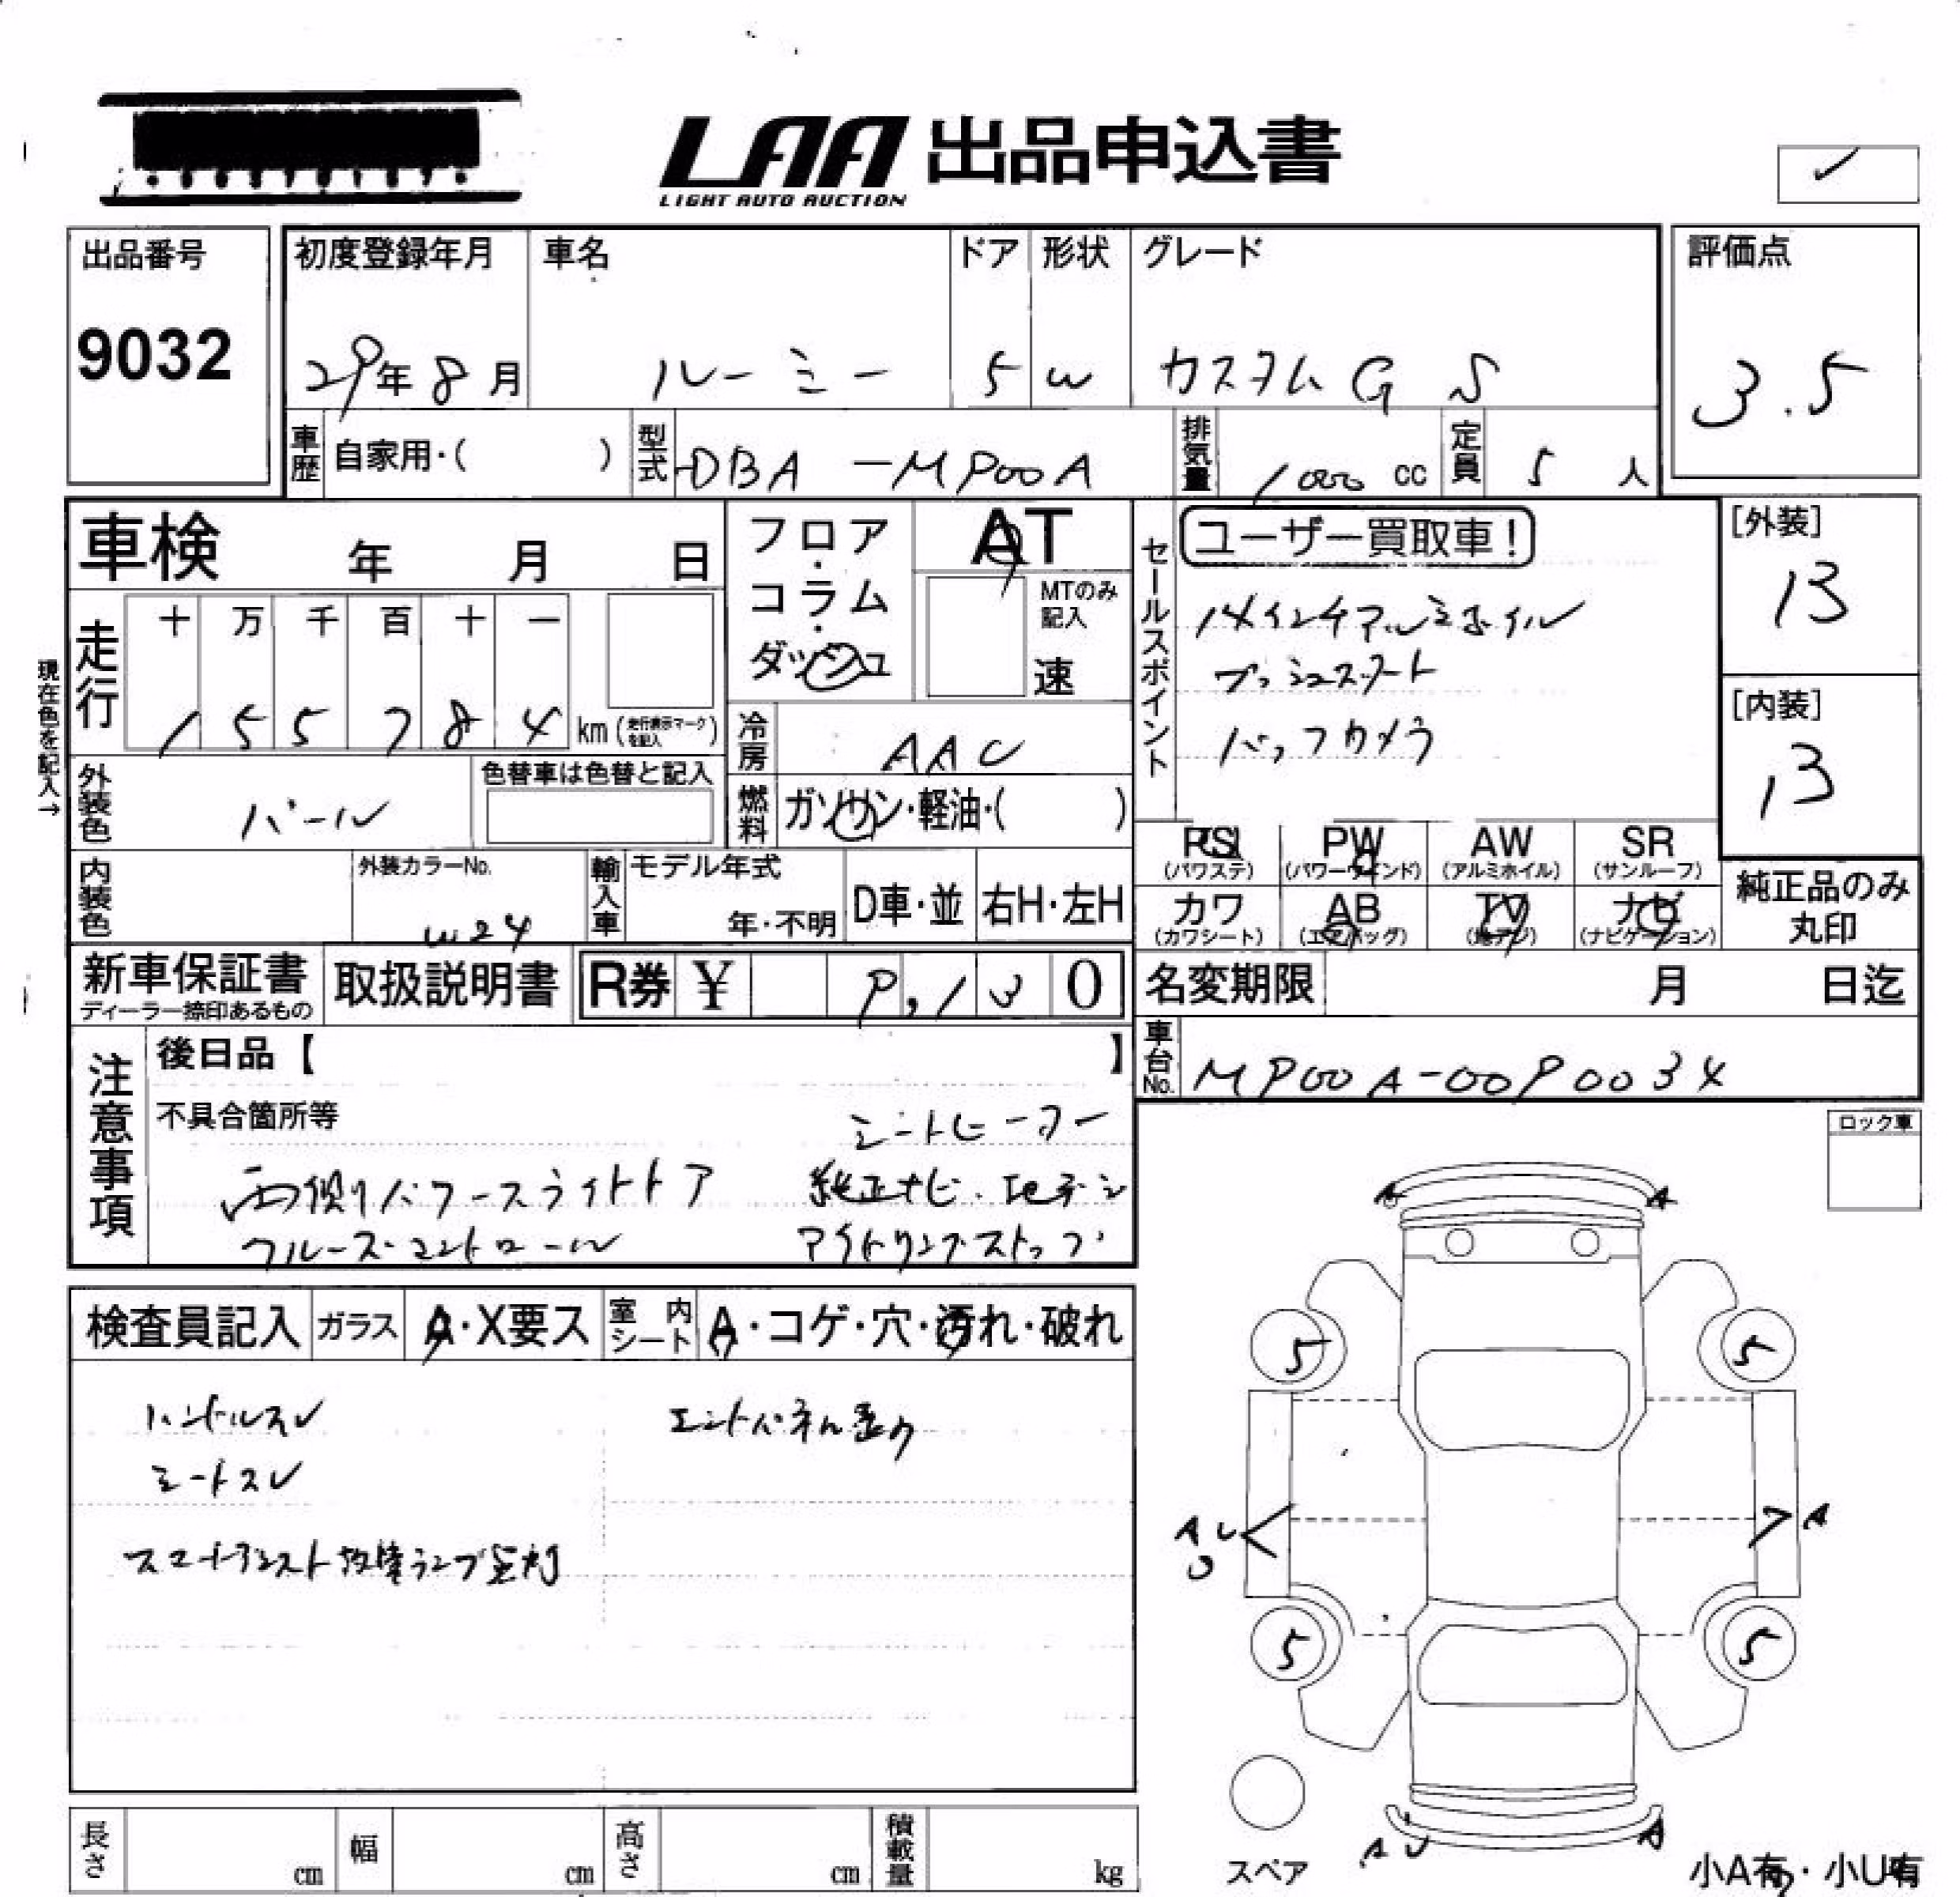 LAA 出品申込書
LIGHT AUTO AUCTION
出品番号
9032
初度登録年月
29年 8月
車名
ルーミー
ドア
5
形状
W
グレード
カスタム G S
評価点
3.5
車歴
自家用・( )
型式
DBA-M900A
排気量
1000 cc
定員
5 人
車検 年 月 日
フロア・コラム・ダッシュ
AT
MTのみ記入
速
セールスポイント
ユーザー買取車!
14インチアルミホイル
プッシュスタート
バックカメラ
[外装]
13
[内装]
13
現在色を記入→
走行
十 万 千 百 十 一
1 5 5 7 8 4 km (走行表示マークを記入)
冷房
AAC
外装色
パール
色替車は色替と記入
燃料
ガソリン・軽油・( )
内装色
外装カラーNo.
W24
輸入車
モデル年式
年・不明
D車・並
右H・左H
PS
(パワステ)
PW
(パワーウインド)
AW
(アルミホイル)
SR
(サンルーフ)
カワ
(カワシート)
AB
(エアバッグ)
TV
(地デジ)
ナビ
(ナビゲーション)
純正品のみ
丸印
新車保証書
ディーラー捺印あるもの
取扱説明書
R券 ¥ 9,130
名変期限 月 日迄
車台No.
M900A-0090034
注意事項
後日品【 】
不具合箇所等
シートヒーター
両側パワースライドドア 純正ナビ. 地デジ
クルーズコントロール アイドリングストップ
ロック車
検査員記入
ガラス
A・X要ス
室内シート
A・コゲ・穴・汚れ・破れ
ハンドルスレ
エンドパネル歪み
シートスレ
スマートアシスト故障ランプ点灯
A A
5 5
A U
A
5 5
A U A
長さ cm
幅 cm
高さ cm
積載量 kg
スペア
小A有・小U有